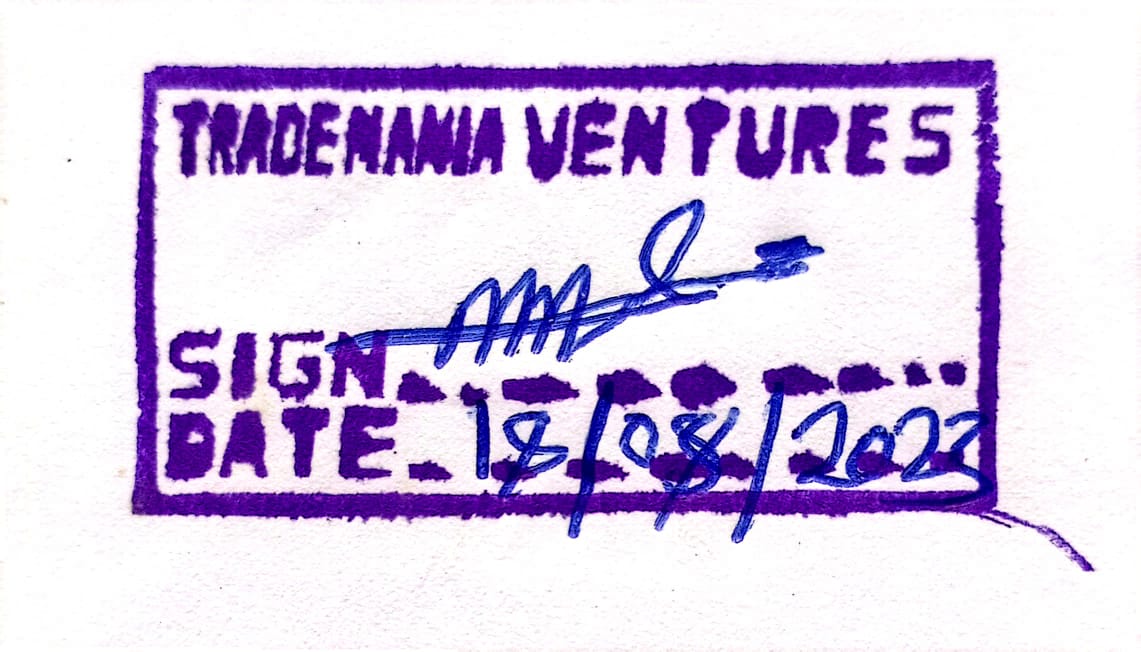 TRADEMANIA VENTURES
SIGN
DATE 18/08/2023